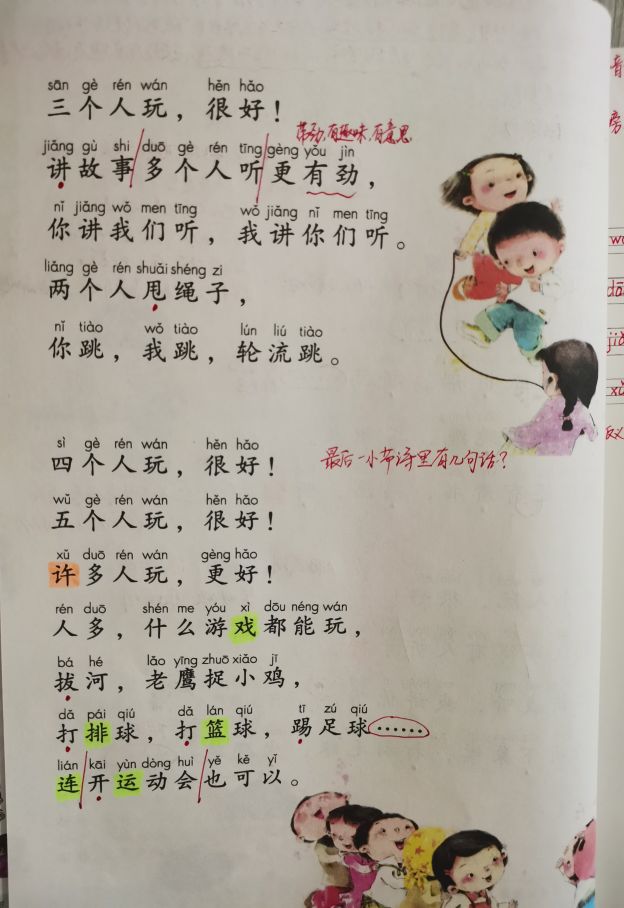 sān gè rén wán hěn hǎo
三个人玩，很好！
带劲，有趣味，有意思
jiǎng gù shi duō gè rén tīng gèng yǒu jìn
讲故事多个人听更有劲，
nǐ jiǎng wǒ men tīng wǒ jiǎng nǐ men tīng
你讲我们听，我讲你们听。
liǎng gè rén shuǎi shéng zi
两个人甩绳子，
nǐ tiào wǒ tiào lún liú tiào
你跳，我跳，轮流跳。
sì gè rén wán hěn hǎo
四个人玩，很好！
最后一小节诗里有几句话？
wǔ gè rén wán hěn hǎo
五个人玩，很好！
xǔ duō rén wán gèng hǎo
许多人玩，更好！
rén duō shén me yóu xì dōu néng wán
人多，什么游戏都能玩，
bá hé lǎo yīng zhuō xiǎo jī
拔河，老鹰捉小鸡，
dǎ pái qiú dǎ lán qiú tī zú qiú
打排球，打篮球，踢足球……
lián kāi yùn dòng huì yě kě yǐ
连开运动会也可以。
音
旁